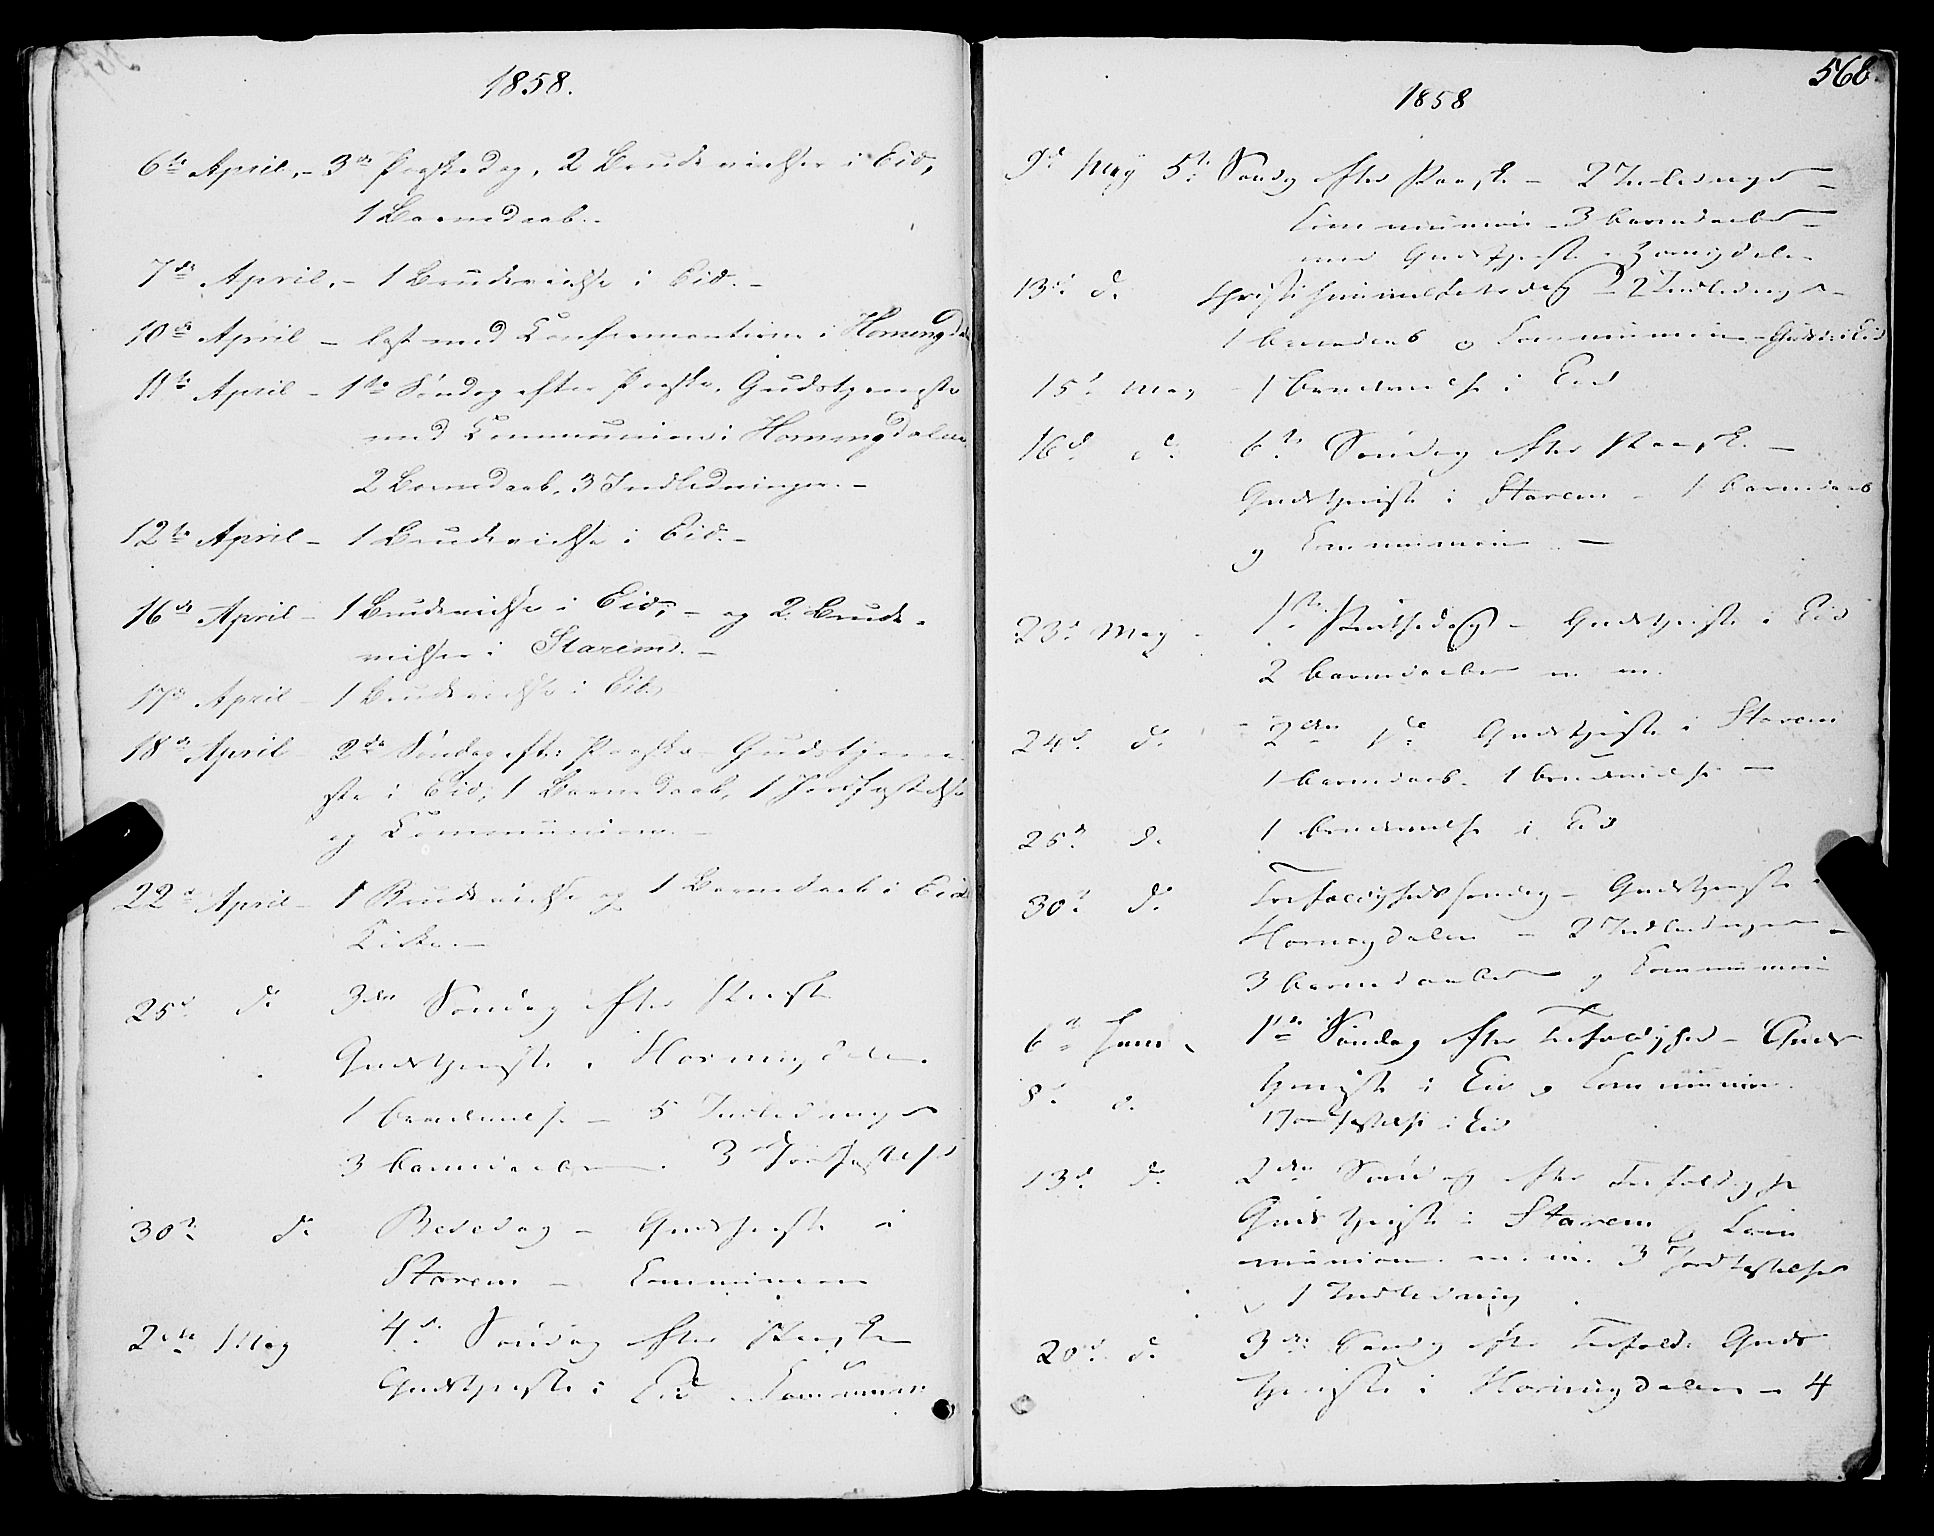 1858.
6te April. - 3die Paaskedag, 2 Brudevielser i Eid,
1 Barnedaab. -
7de April. - 1 Brudevielse i Eid. -
10de April - læst med Confirmanterne i Horningdal
11te April - 1ste Søndag efter Paaske. Gudstjeneste
med Communion i Horningdalen
2 Barnedaab, 3 Indledninger. -
12te April - 1 Brudevielse i Eid. -
16de April - 1 Brudevielse i Eid; - og 2 Brude-
vielser i Starems. -
17de April - 1 Brudevielse i Eid.
18de April - 2den Søndag eft: Paaske - Gudstjene-
ste i Eid; 1 Barnedaab, 1 Jordfæstelse
og Communion. -
22de April - 1 Brudevielse og 1 Barnedaab i Eids
Kirke. -
25d do 3die Søndag efter Paaske
Gudstjeneste i Horningdalen
1 brudevielse - 5 Indledninger
3 barnedaaber. 3 Jordfæstelser
30te do Bededag - Gudstjeneste i
Starem - Communion
2den May 4d Søndag efter Paaske
Gudstjeneste i Eid - Communion
568.
1858
9d May 5te Søndg efter Paaske - 2 Indledninger -
Communion - 3 barnedaaber -
Gudstjeneste i Horningdalen
13de d. Christi himmelfartsdag - 2 Indledninger -
1 barnedaab og Communion - Gudst: i Eid
15d May - 1 brudevielse i Eid
16d d. 6te Søndag efter Paaske -
Gudstjeneste i Starem - 1 barnedaab
og Communion -
23d May - 1ste Pintsedag - Gudstjeneste i Eid
2 barnedaaber m. m.
24d d. - 2den do Gudstjeneste i Starem
1 barnedaab. 1 brudevielse -
25de d. 1 brudevielse i Eid
30te d. Trefoldighedssøndag - Gudstjeneste i
Horningdalen - 2 Indledninger -
3 barnedaaber og Communion
6te Juni 1ste Søndag efter Trefoldighed - Guds
tjeneste i Eid og Communion.
8d d. 1 Jordfæstelse i Eid
13d d. 2den Søndag efter Trefoldighe
Gudstjeneste i Starem og Com
munion m. m. 3 Jordfæstelser
1 Indledning
20d d. 3die Søndg efter Trefold: Guds
tjeneste i Horningdalen - 4